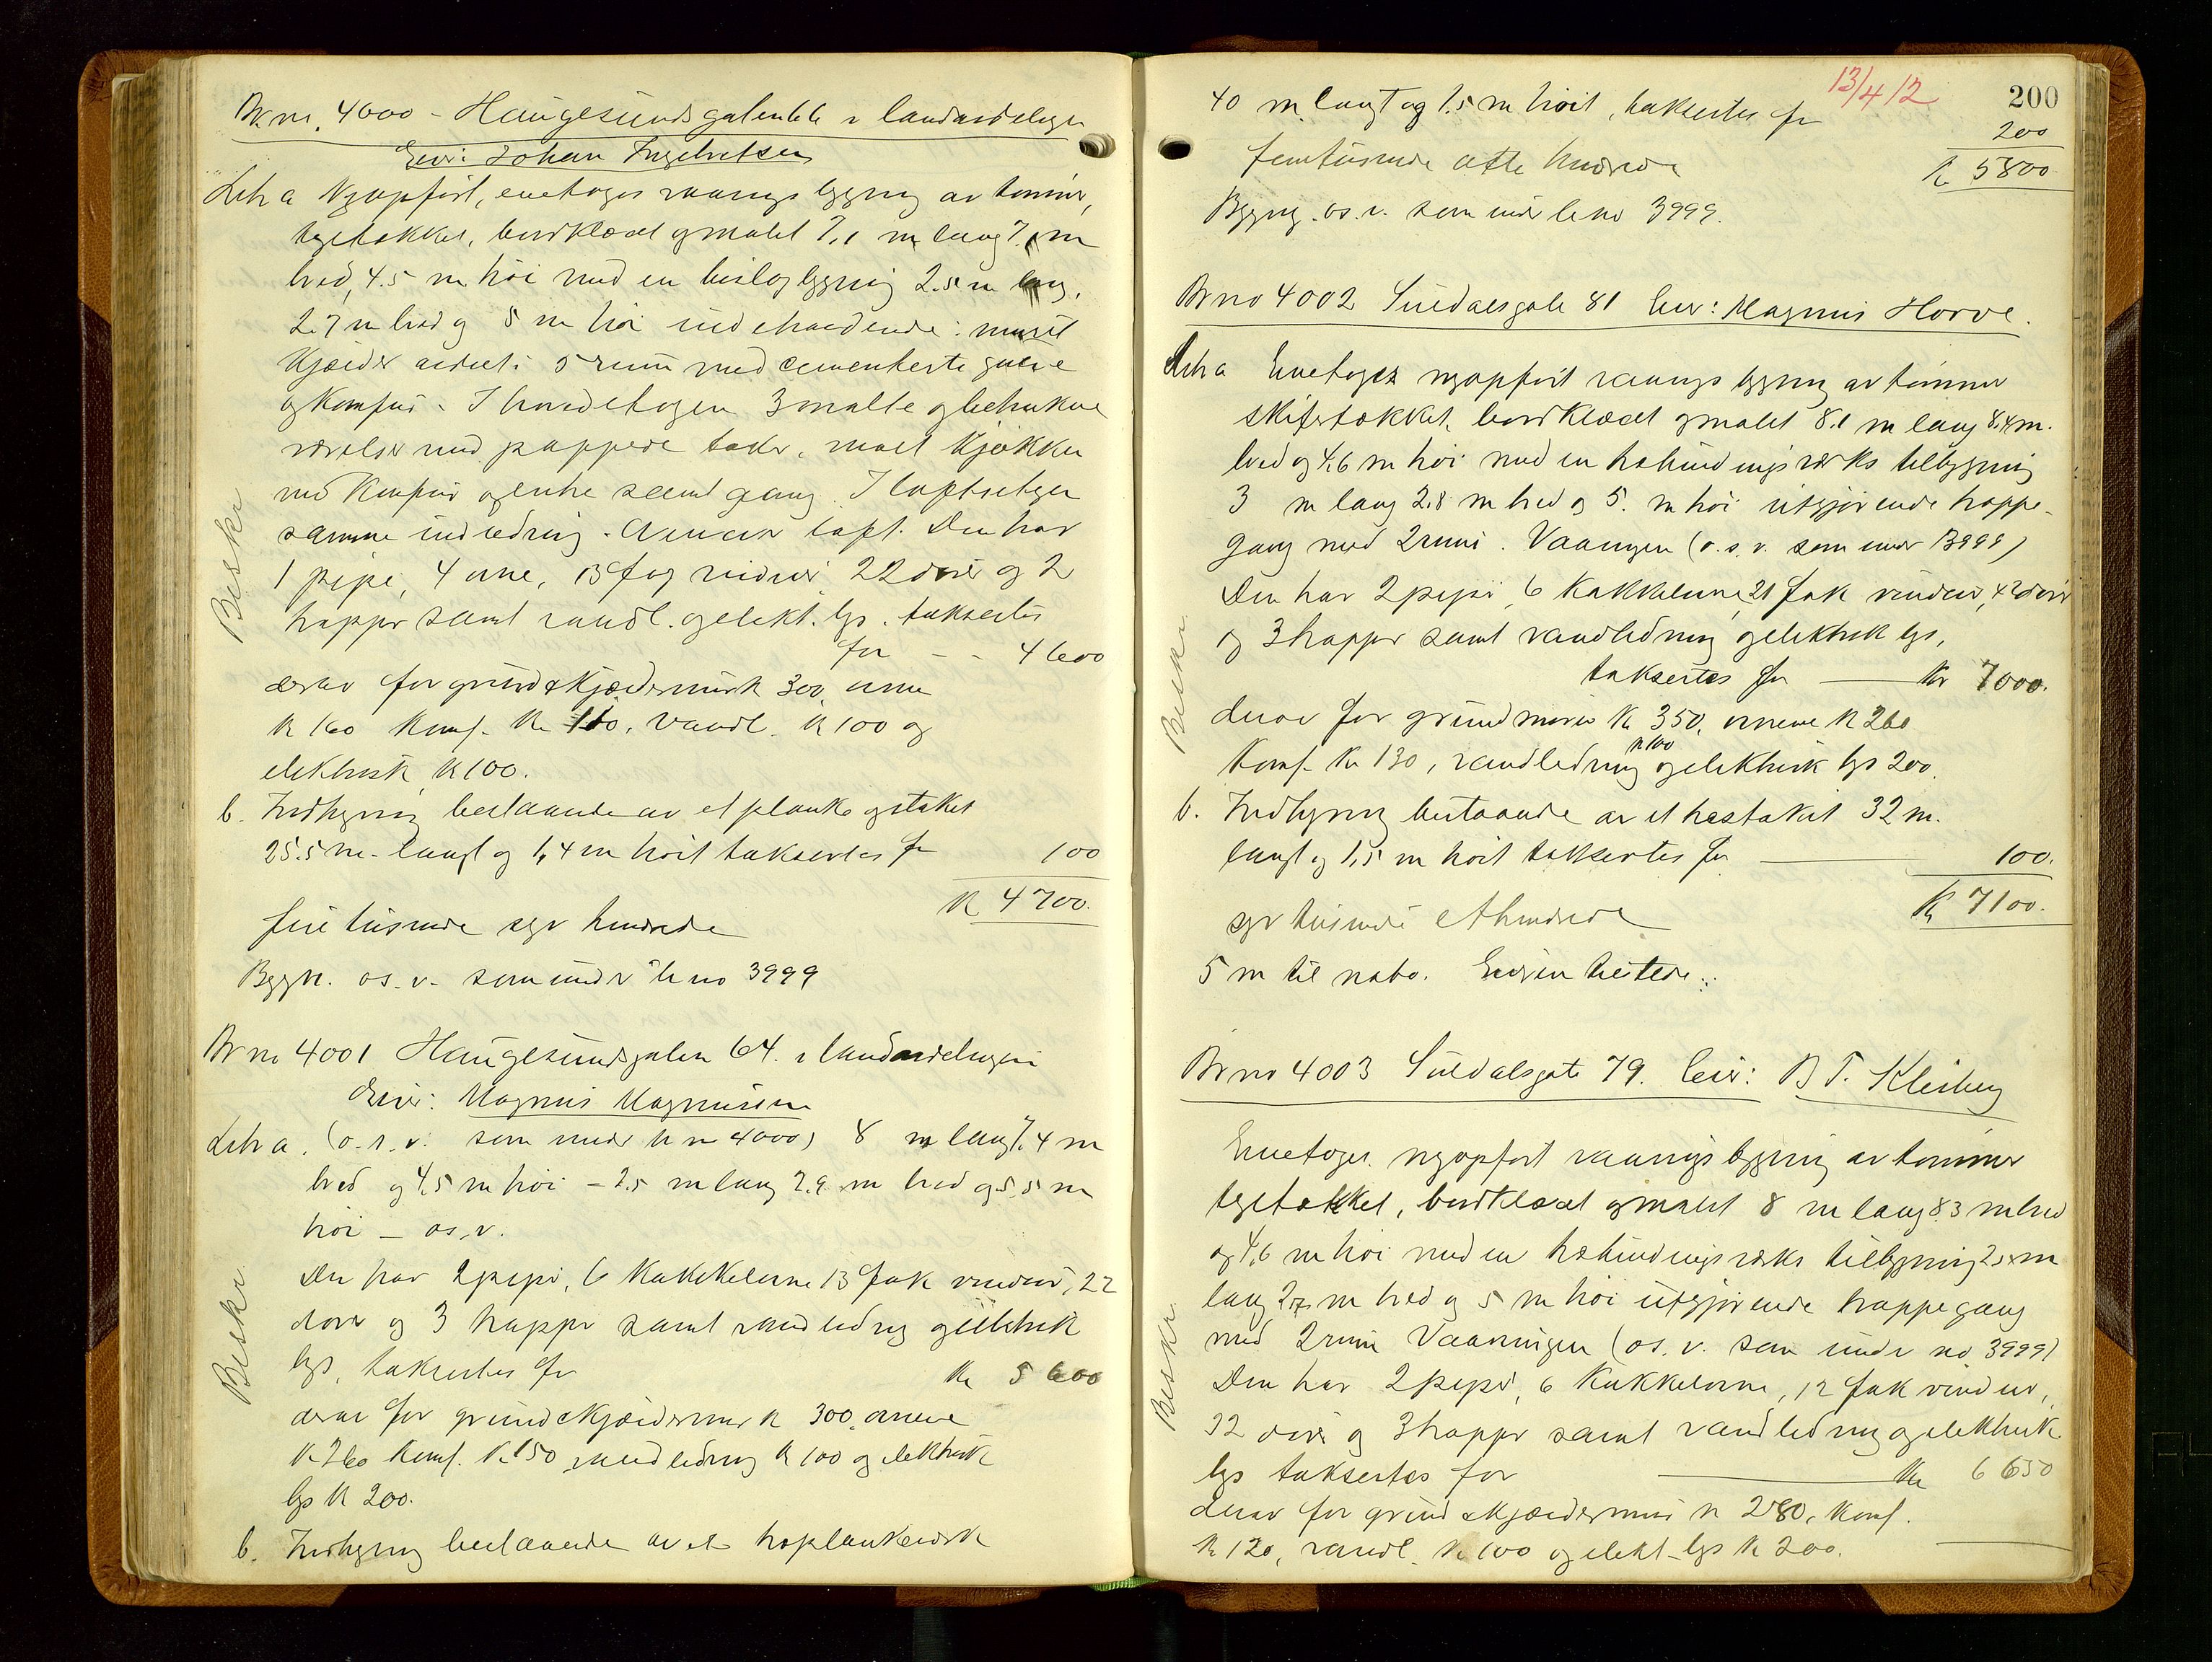 Br.no. 4000 - Haugesundsgaten 66 i landavdelingen
Eier: Johan Ingebretsen
Litr a Nyopført, enetages vaanings bygning av tømmer,
tegltækket, bordklædt og malet 7,1 m lang 7, m
bred, 4.5 m høi med en bislagbygning 2.5 m lang,
2.7 m bred og 5 m høi indeholdende: muret
kjælder avdelt i 5 rum med cementerte gulve
og komfur. I hovedetagen 3 malte og betrukne
værelser med pappede take, malt kjøkken
med komfur og entre samt gang. I loftsetagen
samme indredning. Avancer loft. Den har
1 pipe, 4 ovne, 13 fag vinduer 22 dører og 2
trapper samt vandl. og elekt. lys. takseres
for - - 4600
derav for grund & kjældermur k 300, ovne
k 160 komf. kr 110, vandl. k 100 og
elektrisk k 100.
b. Indhegning bestaaende av et planke og stakit
25.5 m. langt og 1,4 m høit takseres for 100
K 4700.
fire tusinde syv hundrede
Byggn. os.v. som under br no 3999
Br no 4001 Haugesundsgaten 64. i landavdelingen
Eier: Magnus Magnussen
Litr a. (o.s.v. som under br no 4000) 8 m lang 7,4 m
bred og 4,5 m høi - 2,5 m lang 2,9 m bred og 5,5 m
høi - os.v.
Den har 2 piper, 6 kakkelovne 13 fak vinduer, 22
dører og 3 trapper samt vandledning og elektrisk
lys, takseres for Kr 5600
derav for grund & kjældermur k 300, ovnene
k 260 komf. k 150, vandledning k 100 og elektrisk
lys k 200.
b. Indhegning bestaaende av et
Beskr
Beskr
13/4 12
200
40 m. langt og 1.5 m høit, takseres for
200
femtusinde otte hundrede
K 5800
Byggng. os.v. som under br no 3999.
Br no 4002 Suldalsgate 81 Eier: Magnus Horve.
Litr a Enetages nyopført vaanings bygning av tømmer
skifertækket, bordklædt og malet 8.1 m lang 8,4 m.
bred og 4,6 m høi med en utbindingsværks tilbygning
3 m lang 2,8 m bred og 5. m høi utgjørende trappe-
gang med 2 rum. Vaaningen (o.s.v. som under 3999)
Den har 2 piper, 6 kakkelovne 21 fak vinduer, 42 dører
og 3 trapper samt vandledning og elektrisk lys,
takseres for Kr 7000.
derav for grundmuren K 350, ovnene K 260
komf. kr 130, vandledning k 100 og elektrisk lys 200.
b. Indhegning bestaaende av et træstakit 32 m.
langt og 1,5 m høit takseres for 100.
K 7100.
syv tusinde et hundrede
5 m til nabo. Eieren tilstede.
Br no 4003 Suldalsgate 79. Eier: B T. Kleiberg
Enetages. nyopført vaanings bygning av tømmer
tegltækket, bordklædt og malet 8 m lang 8.3 m bred
og 4,6 m høi med en utbindingsværks tilbygning 2,5 m
lang 2,7 m bred og 5 m høi utgjørende trappegang
med 2 rum Vaaningen (os.v. som under no 3999)
Den har 2 piper, 6 kakkelovne, 12 fak vinduer,
32 dører og 3 trapper samt vandledning og elektrisk
lys takseres for Kr 6650
derav for grund & kjældermur k 280, komf.
k 120, vandl. k 100 og elekt. lys k 200.
Beskr
Beskr.